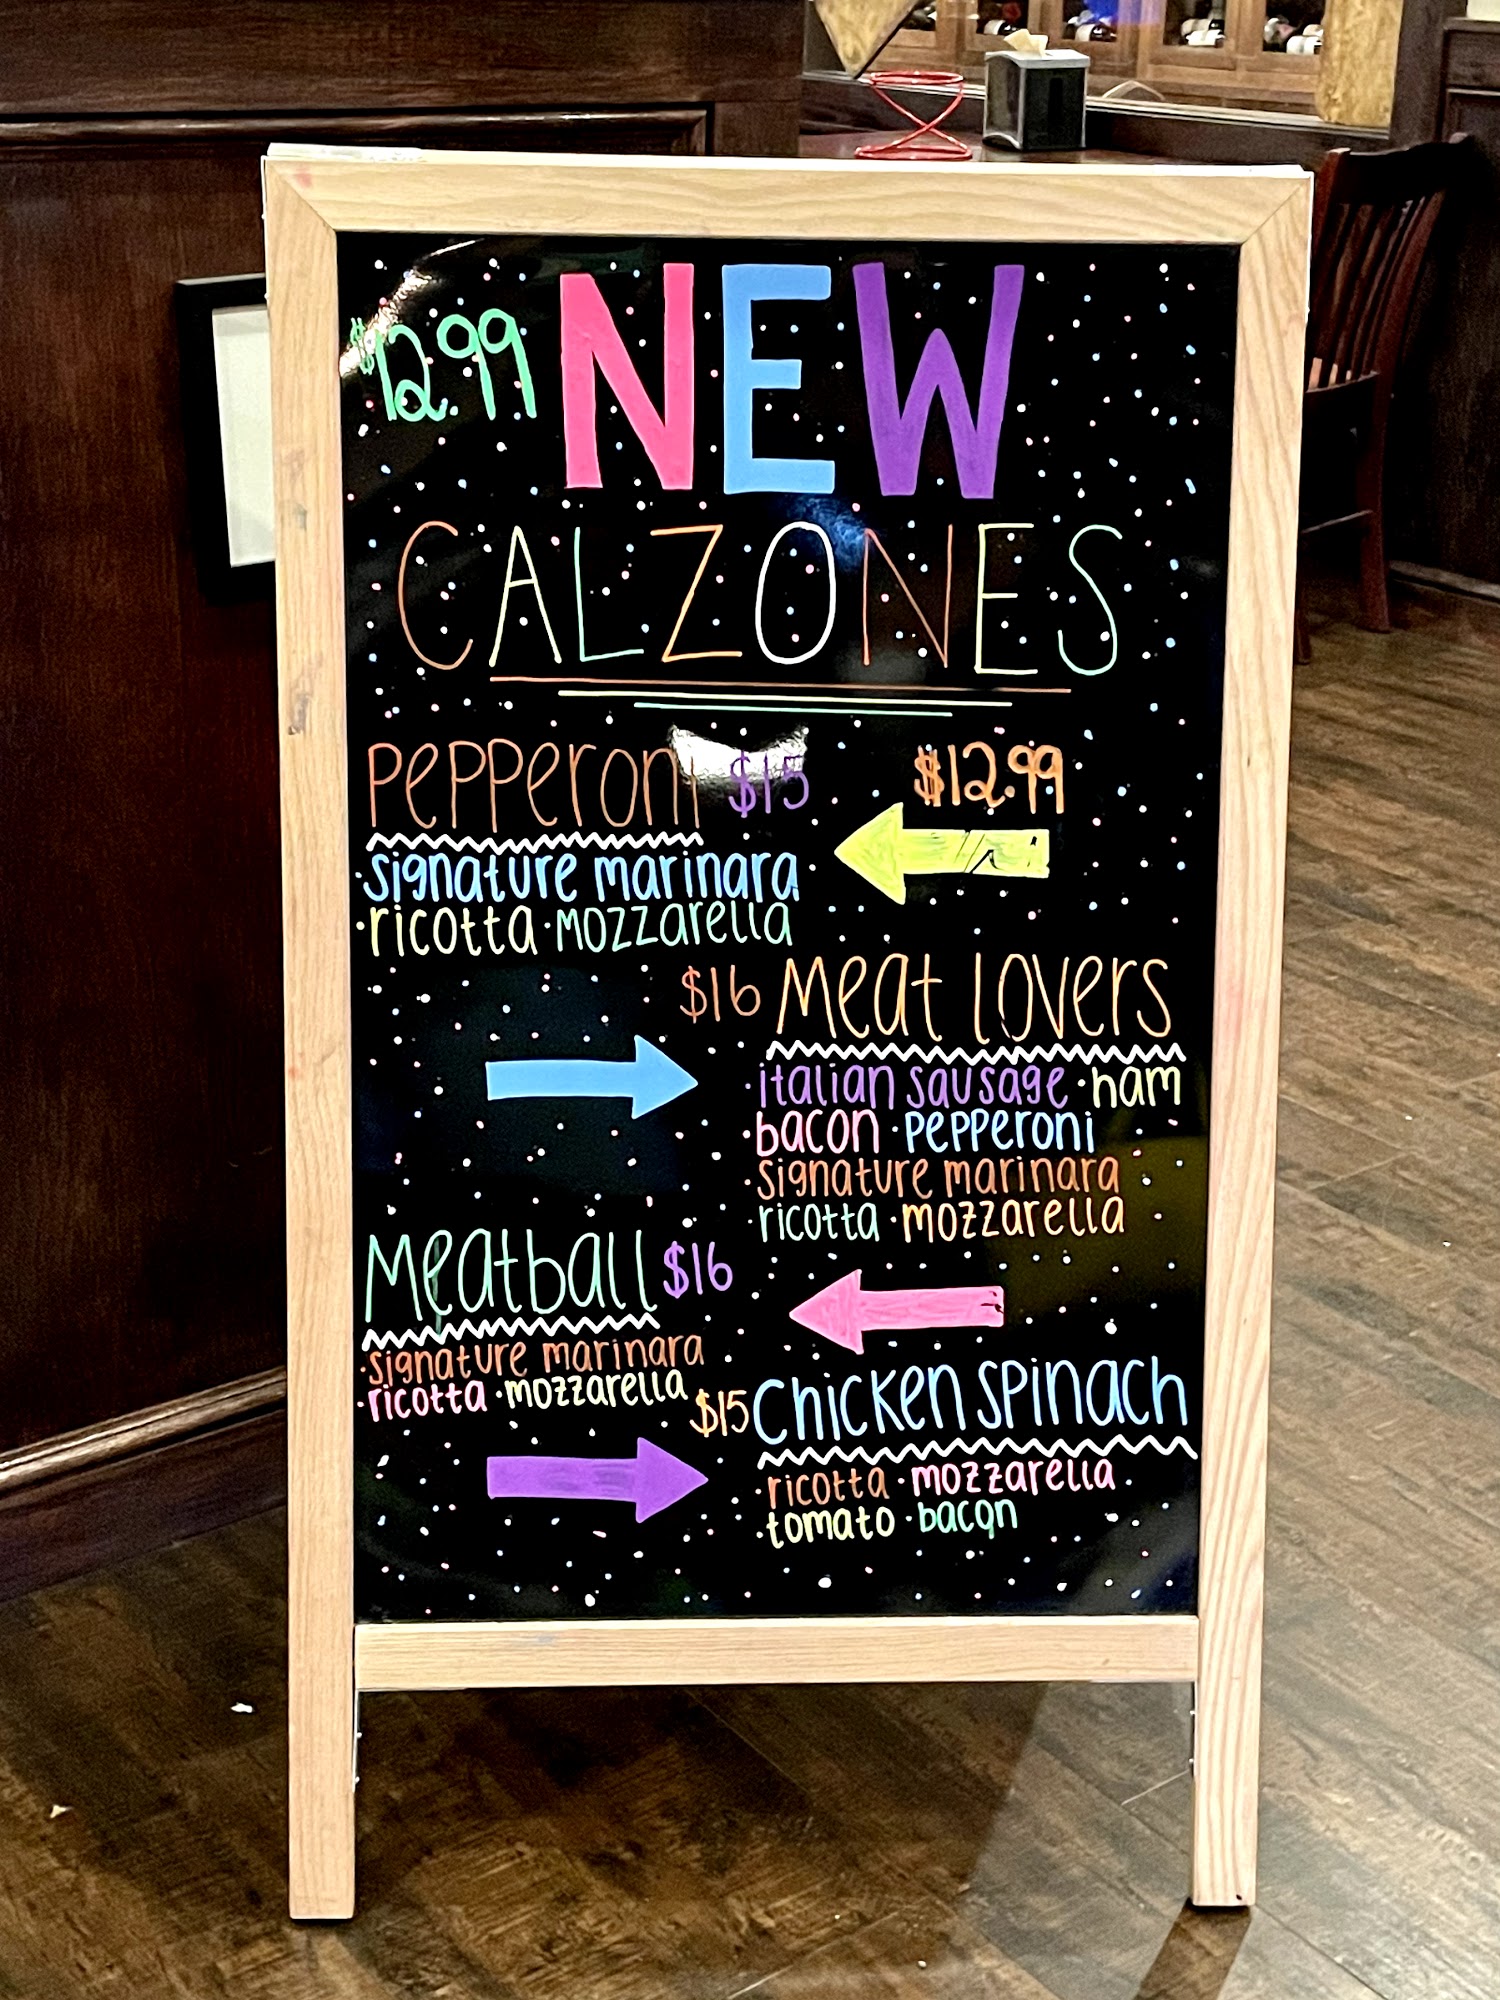 $12.99 NEW
CALZONES
Pepperoni $15 $12.99
·signature marinara
·ricotta ·mozzarella
$16 Meat lovers
·italian sausage ·ham
·bacon ·pepperoni
·signature marinara
·ricotta ·mozzarella
Meatball $16
·signature marinara
·ricotta ·mozzarella
$15 Chicken spinach
·ricotta ·mozzarella
·tomato ·bacon